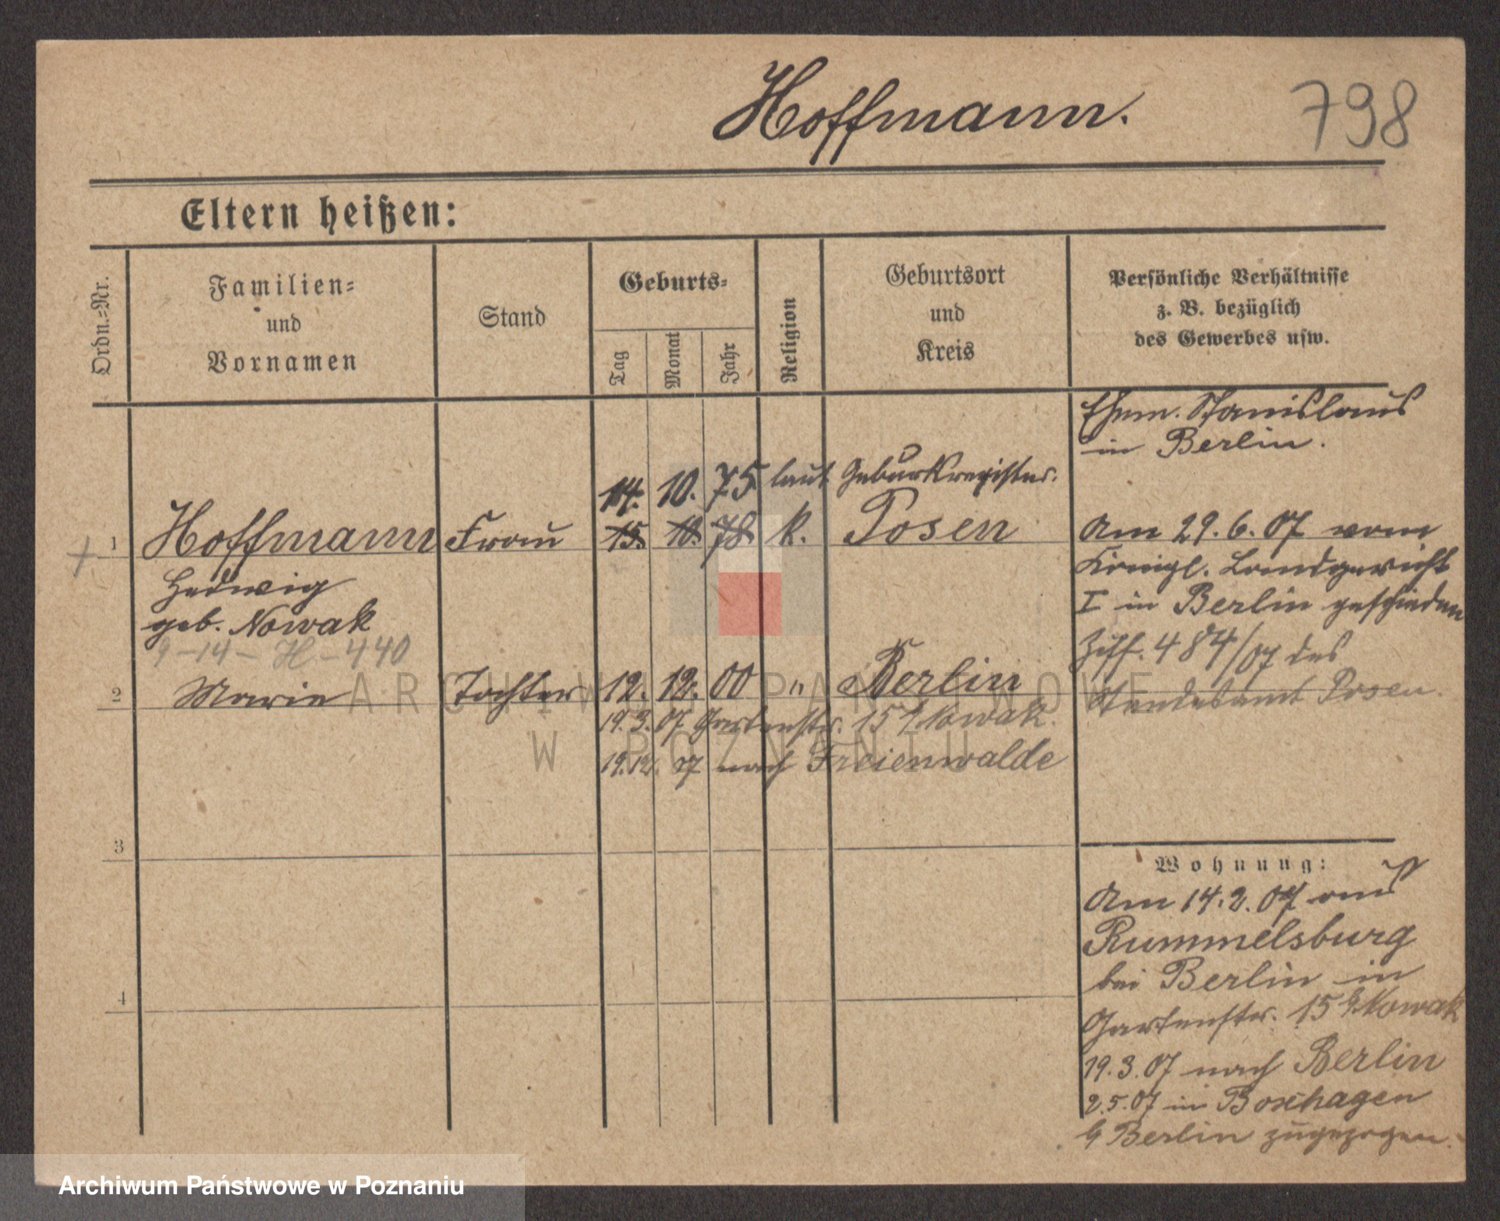 Hoffmann.
798
Eltern heißen:
Ordn.-Nr.
Familien-
und
Vornamen
Stand
Geburts-
Tag
Monat
Jahr
Religion
Geburtsort
und
Kreis
Persönliche Verhältnisse
z. B. bezüglich
des Gewerbes usw.
Ehem. Stanislaus
in Berlin.
14. 10. 75 laut Geburtsregister.
1 Hoffmann Frau 15. 10. 78 k. Posen
Hedwig
geb. Nowak
9-14-H-440
2 Marie Tochter 12. 12. 00 " Berlin
19.3.07 Gartenstr. 15 b/Nowak.
19.12. 07 nach Freienwalde
Am 29.6.07 vom
Königl. Landgericht
I in Berlin geschieden
Ziff. 484/07 des
Standesamt Posen.
3
4
Wohnung:
Am 14.2.07 aus
Rummelsburg
bei Berlin in
Gartenstr. 15 b/Nowak
19.3.07 nach Berlin
2.5.07 in Boxhagen
b/Berlin zugezogen.
ARCHIWUM PAŃSTWOWE
W POZNANIU
Archiwum Państwowe w Poznaniu